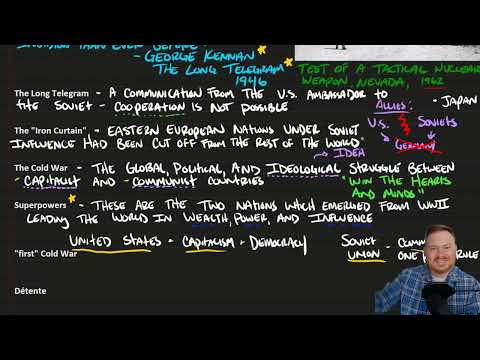 INVASION THAN EVER BEFORE"
- GEORGE KENNAN
THE LONG TELEGRAM
1946
TEST OF A TACTICAL NUCLEAR
WEAPON, NEVADA, 1962
The Long Telegram - A COMMUNICATION FROM THE U.S. AMBASSADOR TO
THE SOVIET - COOPERATION IS NOT POSSIBLE
ALLIES: • JAPAN
U.S. SOVIETS
GERMANY
The "Iron Curtain" - EASTERN EUROPEAN NATIONS UNDER SOVIET
INFLUENCE HAD BEEN CUT OFF FROM THE REST OF THE WORLD
→ IDEA
The Cold War - THE GLOBAL, POLITICAL, AND IDEOLOGICAL STRUGGLE BETWEEN
- CAPITALIST AND - COMMUNIST COUNTRIES
"WIN THE HEARTS
AND MINDS"
Superpowers - THESE ARE THE TWO NATIONS WHICH EMERGED FROM WWII
LEADING THE WORLD IN WEALTH, POWER, AND INFLUENCE
UNITED STATES - CAPITALISM + DEMOCRACY
SOVIET - COMM
UNION ONE RULE
"first" Cold War
Détente